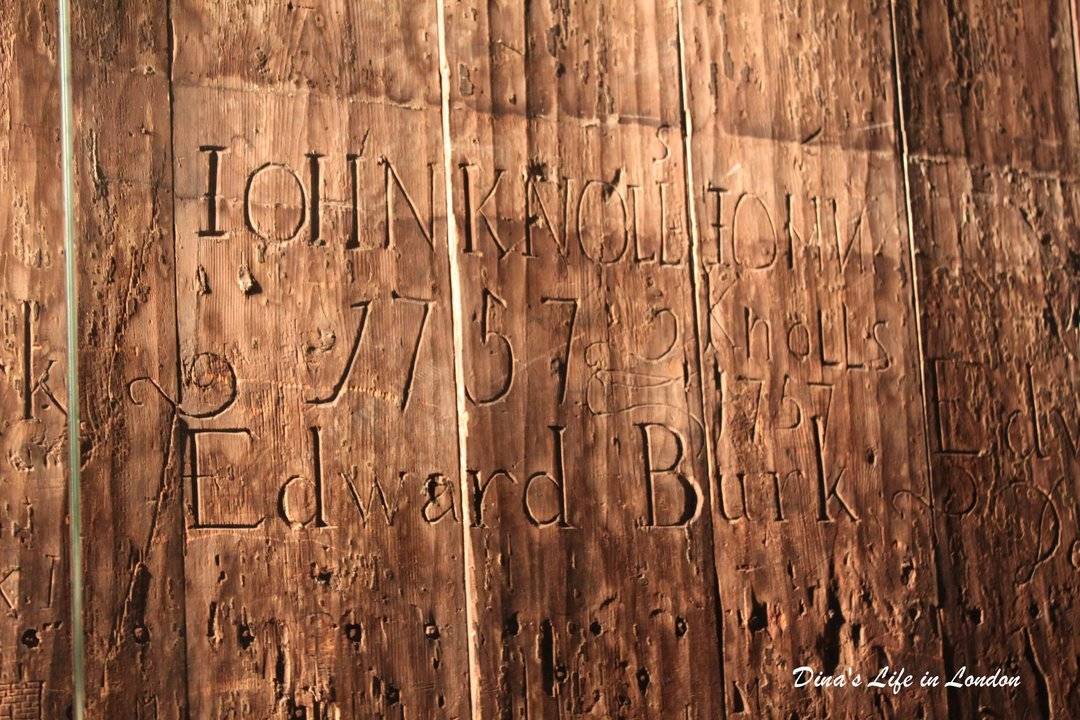 IOHN KNOLLS IOHN
1757 Knolls
1757
Edward Burk Edw
k
Dina's Life in London